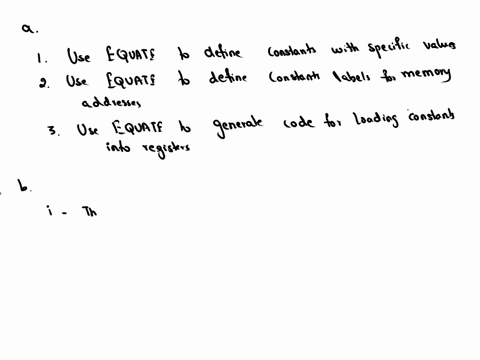 a.
1. Use EQUATE to define constants with specific values
2. Use EQUATE to define constants labels for memory
addresses
3. Use EQUATE to generate code for loading constants
into registers
b.
i - Th